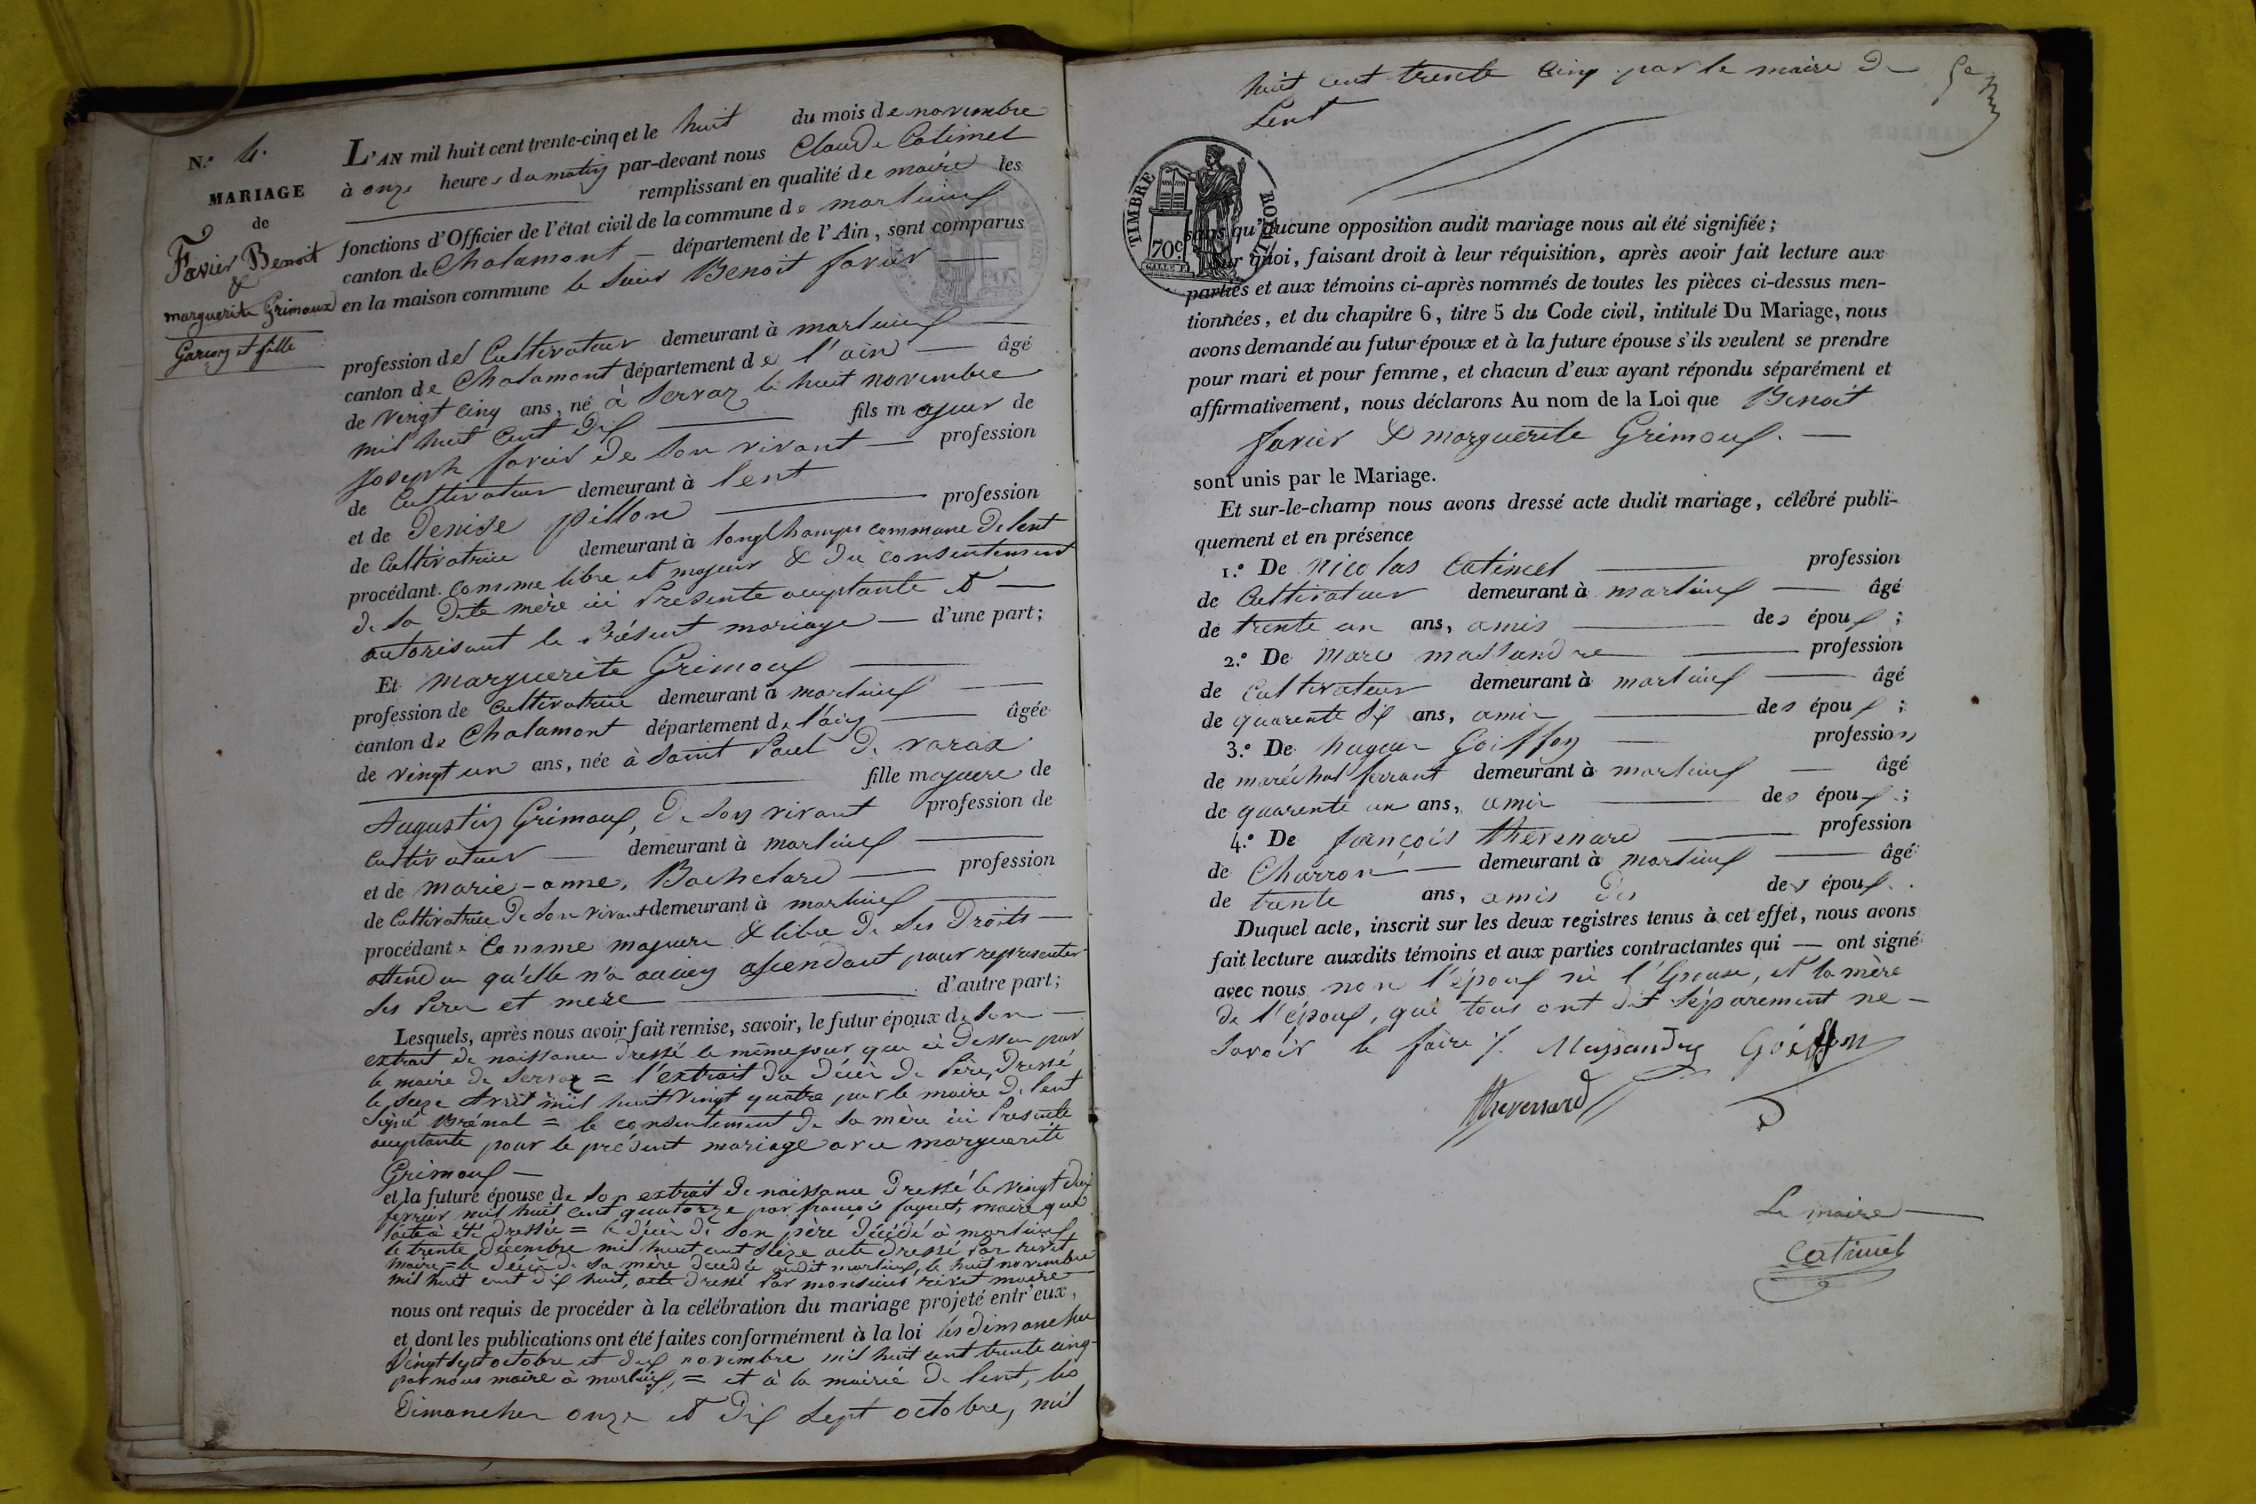 N.º 4.
MARIAGE
de
Favier Benoit
&
marguerite Grimoux
Garçon et fille
L'AN mil huit cent trente-cinq et le huit du mois de novembre
à onze heures du matin par-devant nous Claude Catimel
remplissant en qualité de maire les
fonctions d'Officier de l'état civil de la commune de marlieux
canton de Chalamont département de l'Ain, sont comparus
en la maison commune le sieur Benoit favier
profession de Cultivateur demeurant à marlieux
canton de Chalamont département de l'ain âgé
de vingt cinq ans, né à Servaz le huit novembre
mil huit cent dix fils majeur de
joseph favier de son vivant profession
de Cultivateur demeurant à lent
et de Denise pillon profession
de Cultivatrice demeurant à longchamps commune de lent
procédant comme libre et majeur & du consentement
de sa dite mère ici Presente acceptante et
autorisant le Présent mariage d'une part;
Et marguerite Grimoux
profession de Cultivatrice demeurant à marlieux
canton de Chalamont département de l'ain âgée
de vingt un ans, née à Saint Paul de varax
fille majeure de
Augustin Grimoux, de son vivant profession de
Cultivateur demeurant à marlieux
et de marie-anne Bachelard profession
de Cultivatrice de son vivant demeurant à marlieux
procédant comme majeure & libre de ses Droits
attendu qu'elle n'a aucun ascendant pour representer
ses Pere et mere d'autre part;
Lesquels, après nous avoir fait remise, savoir, le futur époux de son
extrait de naissance Dressé le même jour que ci dessus par
le maire de Servaz = l'extrait du décès de Père, Dressé
le seize Avril mil huit vingt quatre par le maire de lent
signé = le consentement de sa mère ici Presente
acceptante pour le présent mariage avec marguerite
Grimoux
et la future épouse de son extrait de naissance Dressé le vingt dix
fevrier mil huit cent quatorze par françois maire que
l'acte a été dressée = le décès de son père décédé à marlieux
le trente Décembre mil huit cent seize acte dressé Par rivet
maire = le décès de sa mère décédée audit marlieux, le huit novembre
mil huit cent dix huit, acte dressé Par monsieur rivet maire
nous ont requis de procéder à la célébration du mariage projeté entr'eux,
et dont les publications ont été faites conformément à la loi les dimanches
Vingt sept octobre et dix novembre mil huit cent trente cinq
par nous maire à marlieux, = et à la mairie de lent, les
Dimanches onze et dix sept octobre, mil
huit cent trente cinq par le maire de
Lent
TIMBRE ROYAL
70c.
sans qu'aucune opposition audit mariage nous ait été signifiée;
Sur quoi, faisant droit à leur réquisition, après avoir fait lecture aux
parties et aux témoins ci-après nommés de toutes les pièces ci-dessus men-
tionnées, et du chapitre 6, titre 5 du Code civil, intitulé Du Mariage, nous
avons demandé au futur époux et à la future épouse s'ils veulent se prendre
pour mari et pour femme, et chacun d'eux ayant répondu séparément et
affirmativement, nous déclarons Au nom de la Loi que Benoit
favier & marguerite Grimoux.
sont unis par le Mariage.
Et sur-le-champ nous avons dressé acte dudit mariage, célébré publi-
quement et en présence
1.º De nicolas Catimel profession
de Cultivateur demeurant à marlieux âgé
de trente un ans, amis des époux;
2.º De Marc massandre profession
de Cultivateur demeurant à marlieux âgé
de quarente six ans, amis des époux;
3.º De Goiffon profession
de maréchal ferrant demeurant à marlieux âgé
de quarente un ans, amis des époux;
4.º De françois thevenard profession
de Charron demeurant à marlieux âgé
de trente ans, amis des des époux.
Duquel acte, inscrit sur les deux registres tenus à cet effet, nous avons
fait lecture auxdits témoins et aux parties contractantes qui ont signé
avec nous non l'époux ni l'épouse, et la mère
de l'époux, qui tous ont dit séparement ne
savoir le faire %. Massandre Goiffon
thevenard
Le maire
Catimel